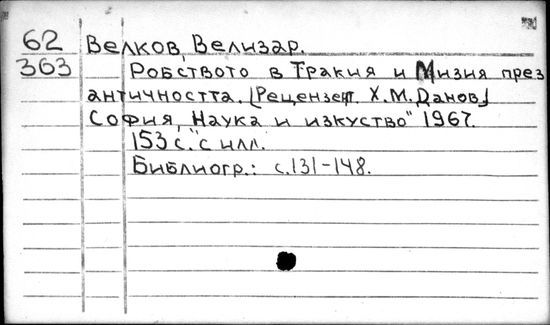 62 Велков, Велизар.
363 Робството в Тракия и Мизия през
античността. [Рецензент Х.М.Данов]
София, "Наука и изкуство" 1967.
153 с. с илл.
Библиогр.: с.131-148.